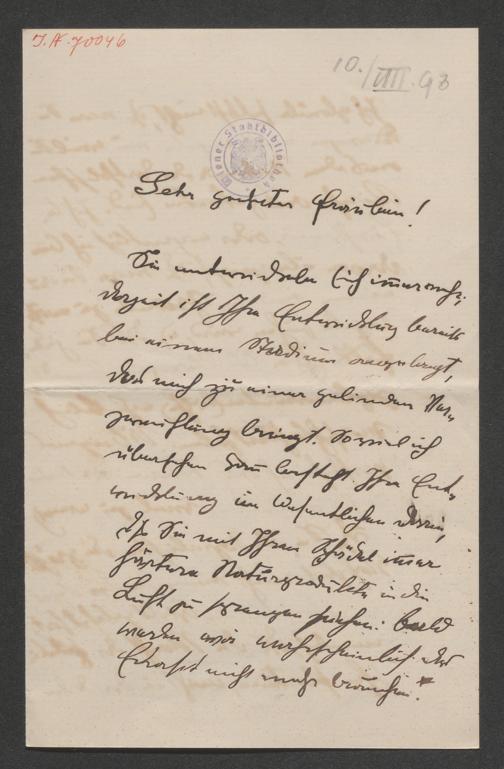 J.N. 70046
10./VIII. 93
Wiener Stadtbibliothek
Sehr geehrtes Fräulein!
Sie entwickeln sich immer mehr;
derzeit ist Ihre Entwicklung bereits
bei einem Stadium angelangt,
das mich zu einer gelinden Ver-
zweiflung bringt. Soviel ich
übersehen kann besteht Ihre Ent-
wicklung im Wesentlichen darin,
daß Sie mit Ihrem Schädel immer
härtere Naturprodukte in die
Luft zu sprengen suchen: bald
werden wir wahrscheinlich das
nicht mehr brauchen.